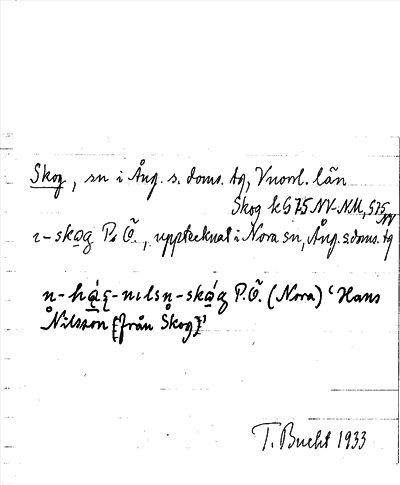 Skog, sn i Ång. s. doms. tg, Vnorrl. län
Skog kS 75 NV-NM, S75 NV
ɩ-skog P. Ö., upptecknat i Nora sn, Ång. s. doms. tg
n-hą́ʂ-nɩlsn-skǫ́g P.Ö. (Nora) ‘Hans
Nilsson [från Skog]’
T. Bucht 1933